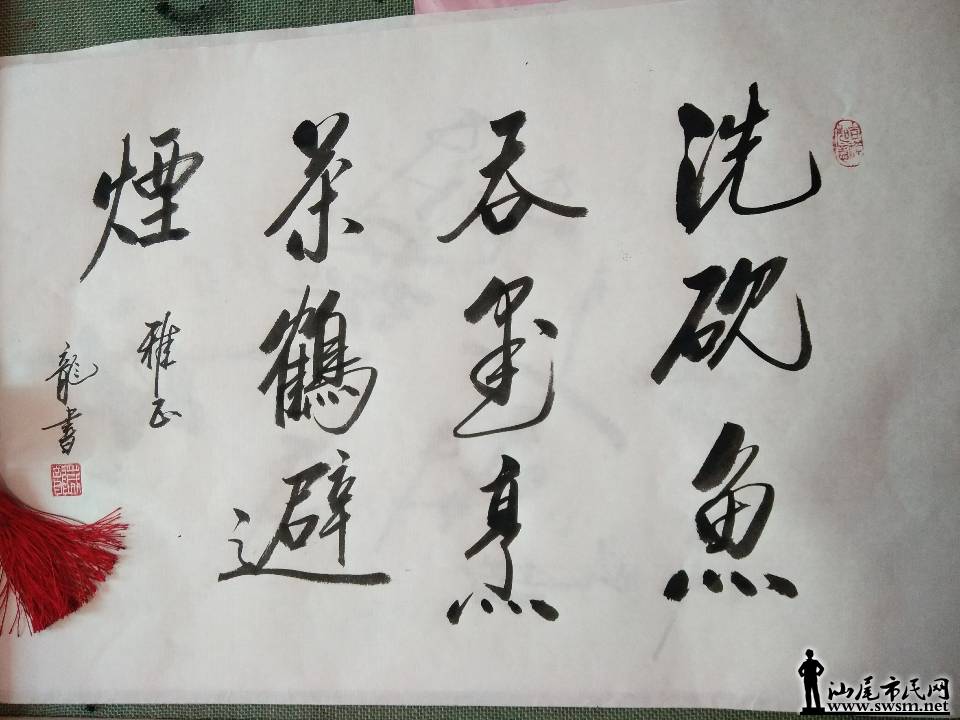 洗砚魚
吞墨烹
茶鶴避
煙
雅正
龍書
汕尾市民网
www.swsm.net